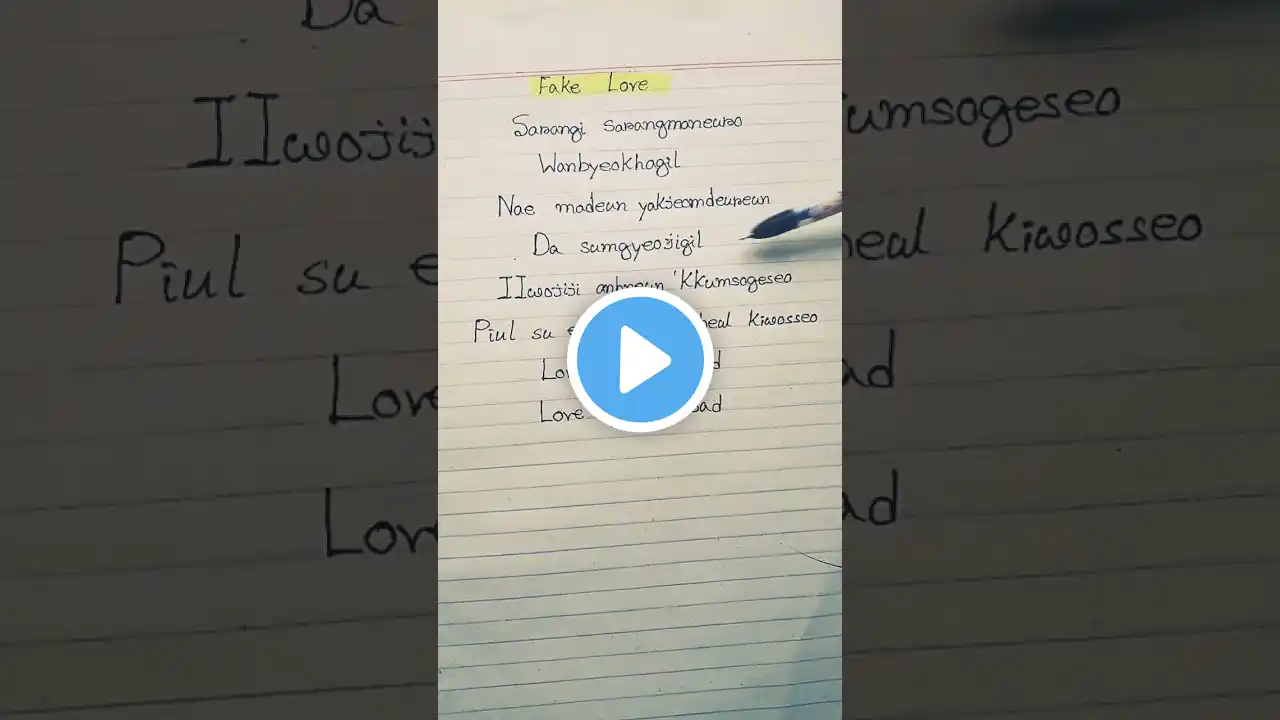 Fake Love
Sarangi sarangmaneuro
Wanbyeokhagil
Nae madeun yakjeomdeureun
Da sumgyeojigil
IIwojiji 'Kkumsogeseo
Piul su Kiwosseo
Love